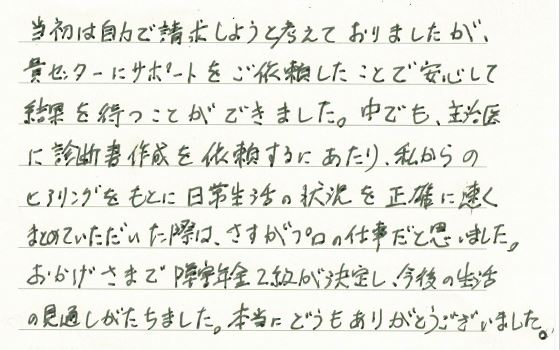 当初は自力で請求しようと考えておりましたが、
貴センターにサポートをご依頼したことで安心して
結果を待つことができました。中でも、主治医
に診断書作成を依頼するにあたり、私からの
ヒアリングをもとに日常生活の状況を正確に速く
まとめていただいた際は、さすがプロの仕事だと思いました。
おかげさまで障害年金2級が決定し、今後の生活
の見通しがたちました。本当にどうもありがとうございました。